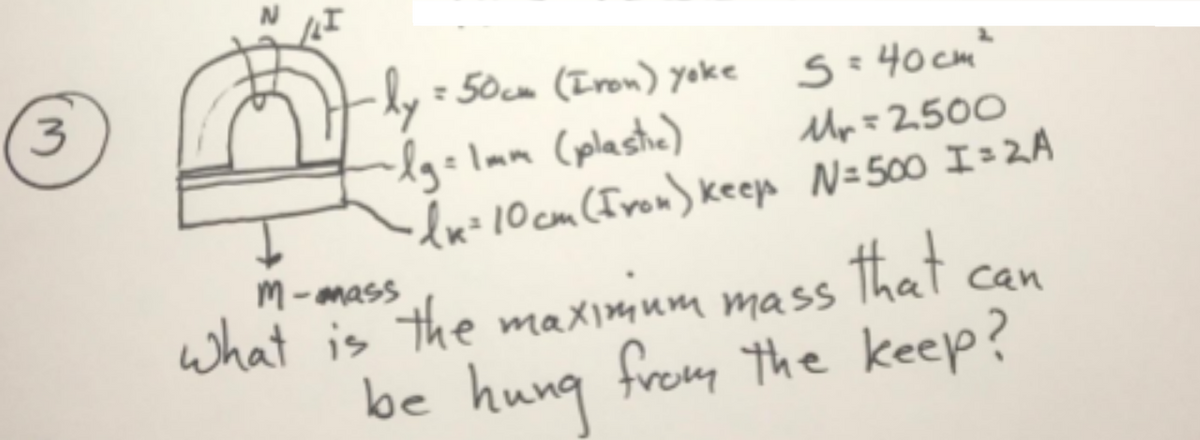 N I
3
ly = 50cm (Iron) yoke S = 40cm²
lg = 1mm (plastic) Mr = 2500
lk = 10cm (Iron) keep N=500 I=2A
M-mass
What is the maximum mass that can
be hung from the keep?